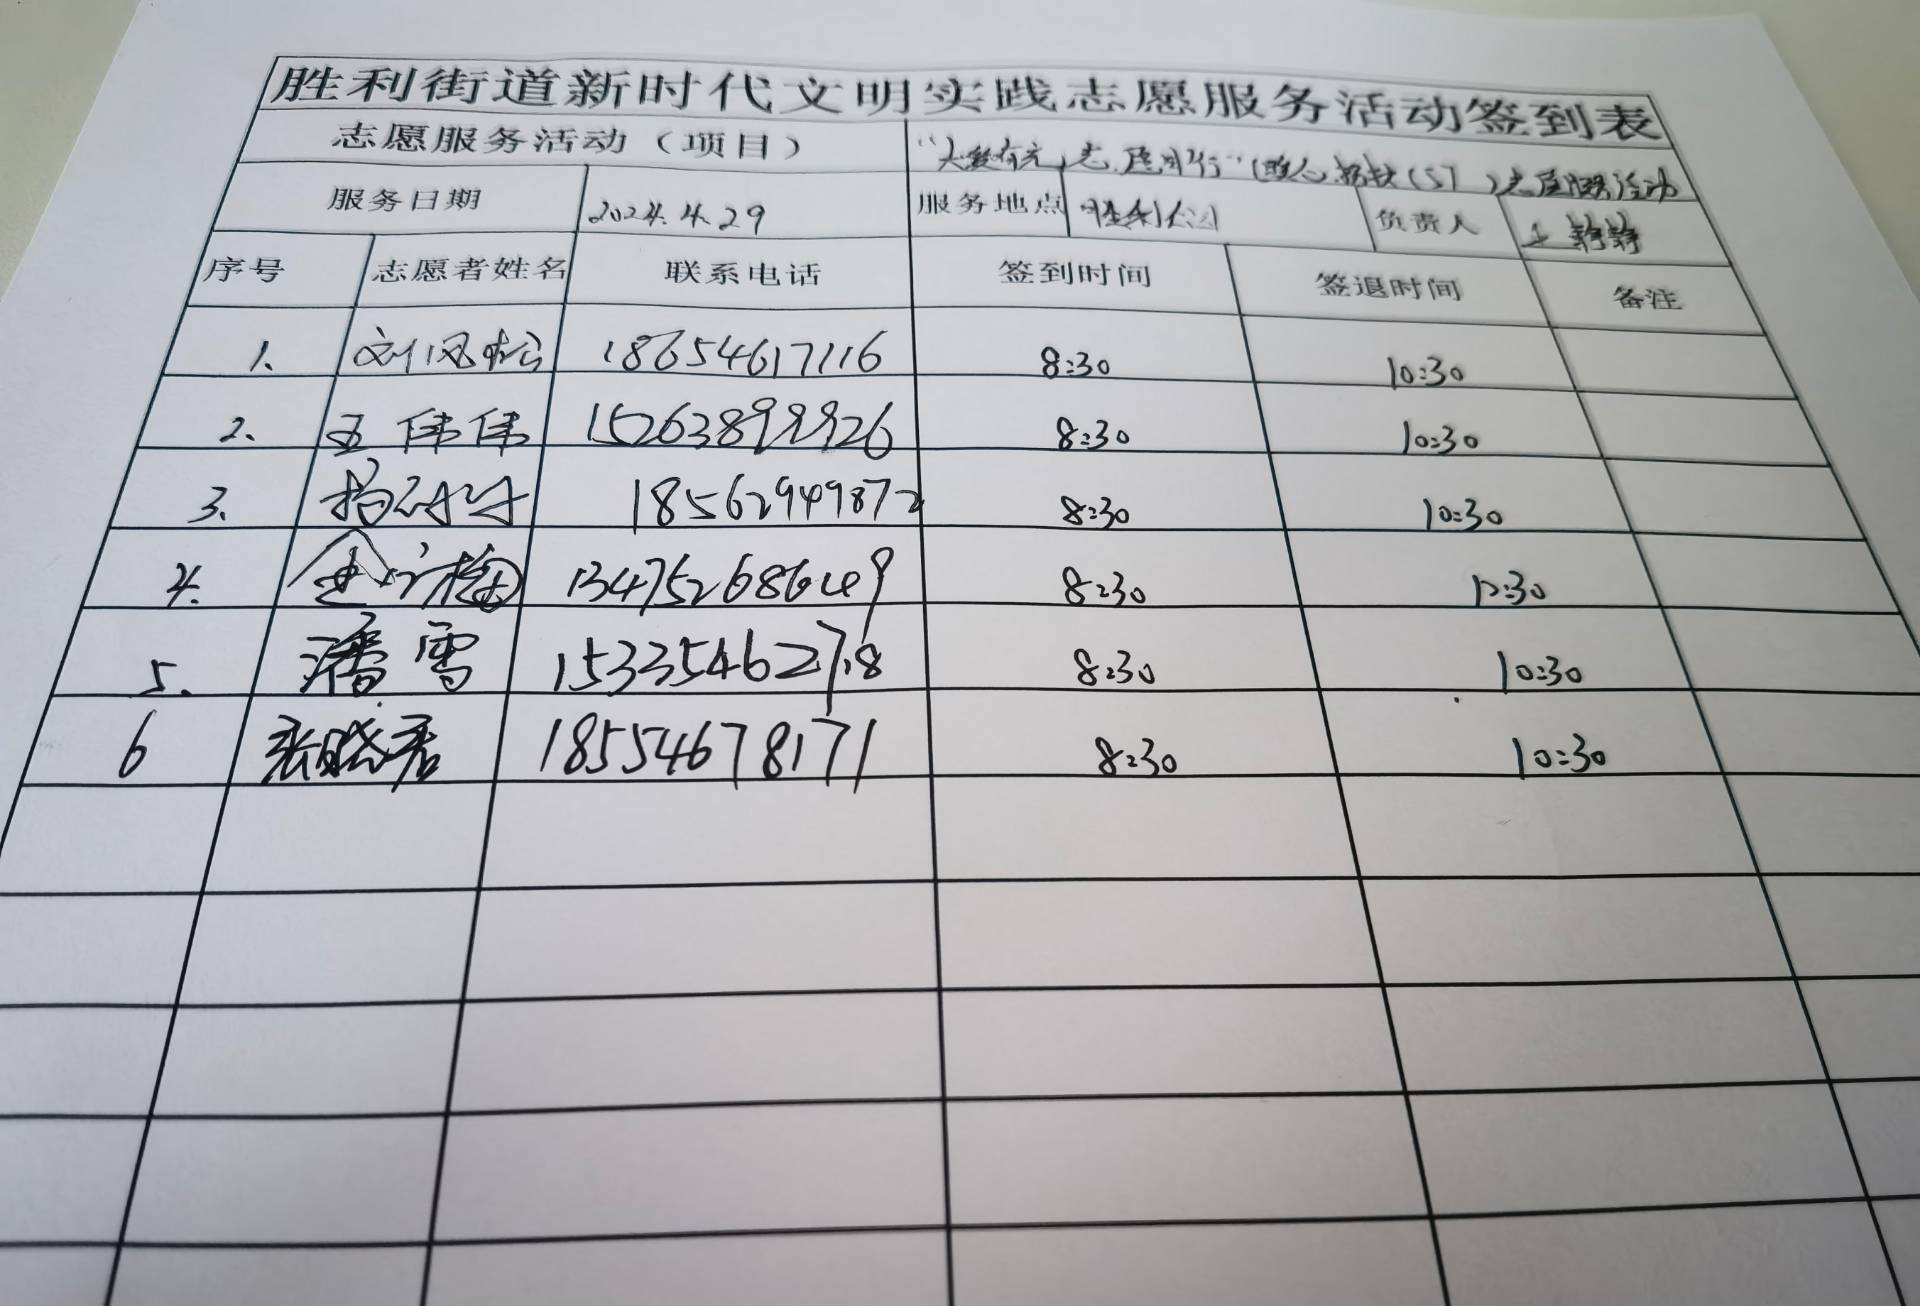 胜利街道新时代文明实践志愿服务活动签到表
志愿服务活动（项目） 志愿服务活动
服务日期 2024.4.29 服务地点 胜利 负责人 王静静
序号 志愿者姓名 联系电话 签到时间 签退时间 备注
1. 刘风松 18654617116 8:30 10:30
2. 王伟伟 15263899926 8:30 10:30
3. 杨 18562949872 8:30 10:30
4. 13475268649 8:30 10:30
5. 潘雪 15335462718 8:30 10:30
6 张晓君 18554678171 8:30 10:30